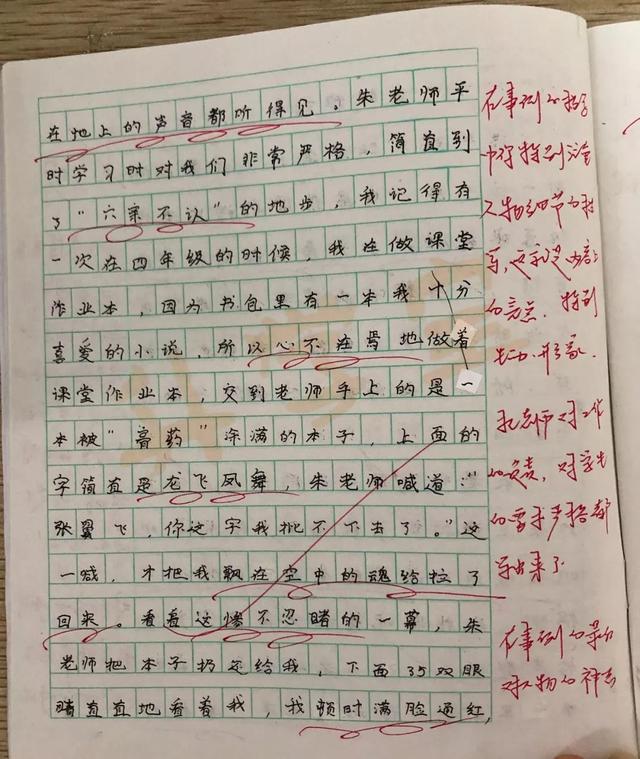 在地上的声音都听得见。朱老师平
时学习时对我们非常严格，简直到
了“六亲不认”的地步，我记得有
一次在四年级的时候，我在做课堂
作业本，因为书包里有一本我十分
喜爱的小说，所以心不在焉地做着
课堂作业本，交到老师手上的是一
本被“膏药”涂满的本子，上面的
字简直是龙飞凤舞，朱老师喊道：“
张翼飞，你这字我批不下去了。”这
一喊，才把我飘在空中的魂给拉了
回来。看着这惨不忍睹的一幕，朱
老师把本子扔还给我，下面35双眼
睛直直地看着我，我顿时满脸通红，
在事例的
中你特别注意
人物细节的描
写，这就是
的亮点，特别
生动、形象。
老师对工作
的负责，对学生
的要求严格都
写出来了
在事例的
对人物的神态